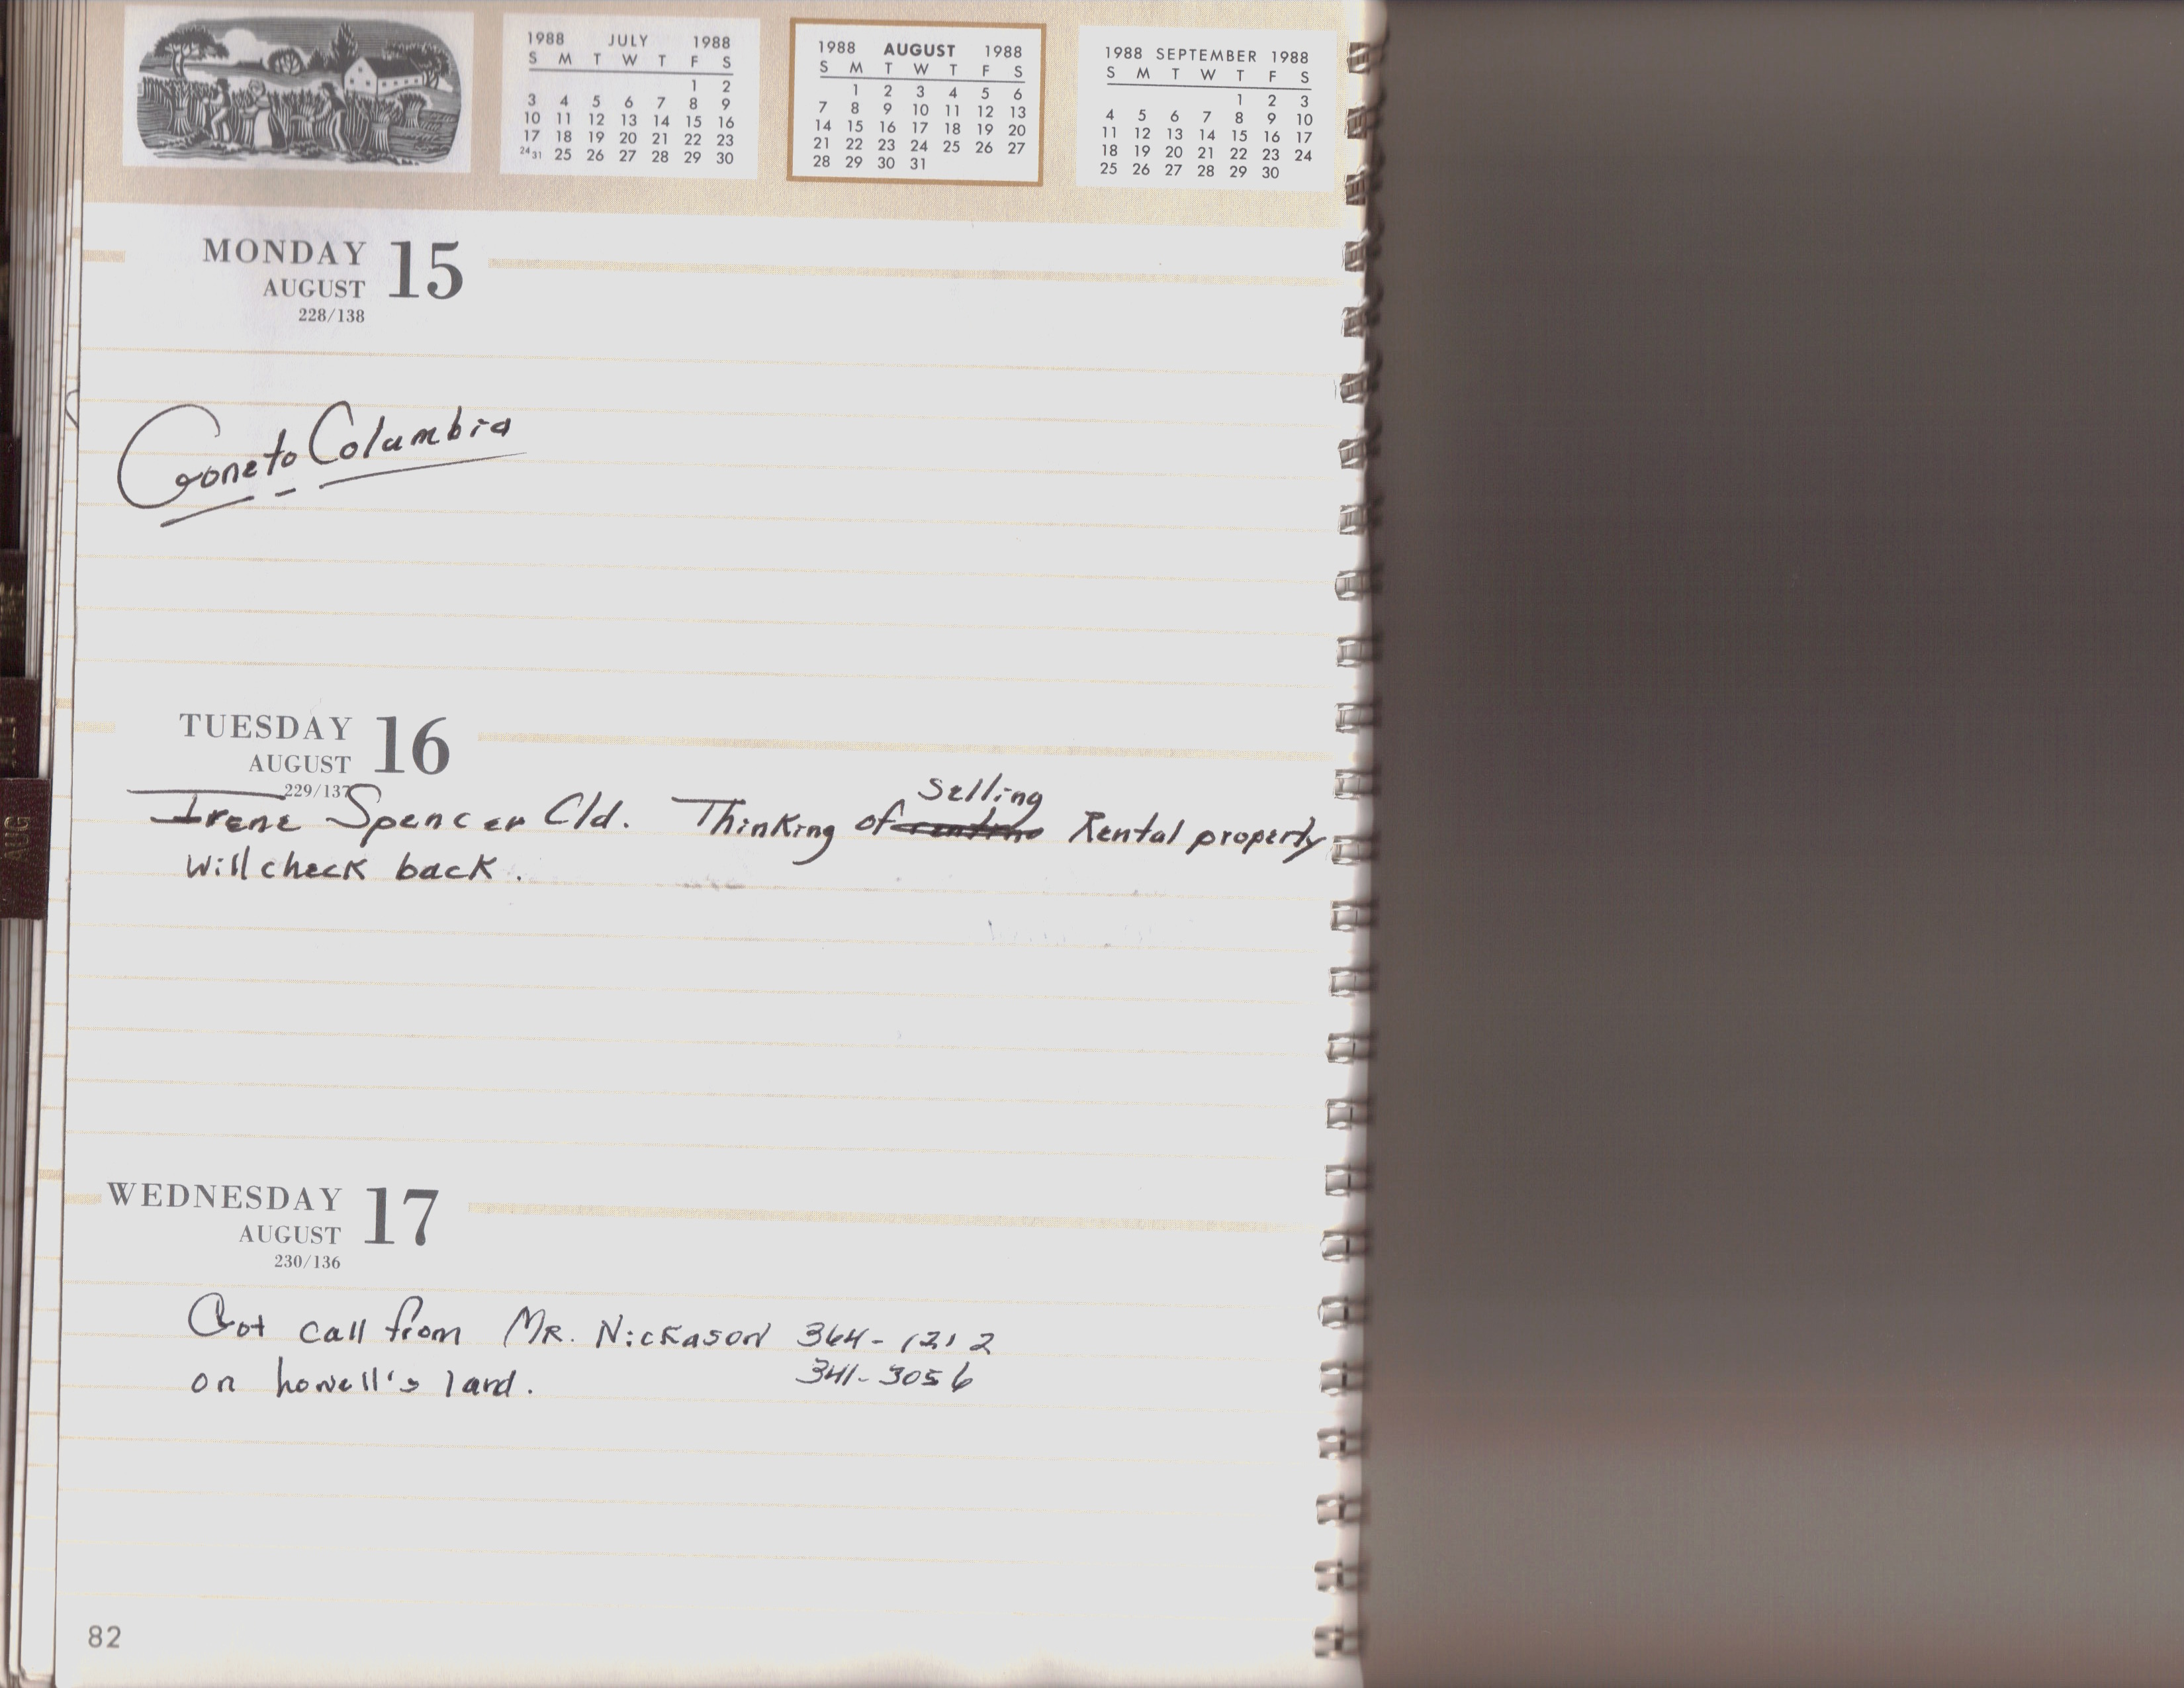 1988 JULY 1988
S M T W T F S
1 2
3 4 5 6 7 8 9
10 11 12 13 14 15 16
17 18 19 20 21 22 23
24 31 25 26 27 28 29 30
1988 AUGUST 1988
S M T W T F S
1 2 3 4 5 6
7 8 9 10 11 12 13
14 15 16 17 18 19 20
21 22 23 24 25 26 27
28 29 30 31
1988 SEPTEMBER 1988
S M T W T F S
1 2 3
4 5 6 7 8 9 10
11 12 13 14 15 16 17
18 19 20 21 22 23 24
25 26 27 28 29 30
MONDAY 15
AUGUST
228/138
Gone to Columbia
TUESDAY 16
AUGUST
229/137
Selling
Irene Spencer Cld. Thinking of Rental property
Will check back.
WEDNESDAY 17
AUGUST
230/136
Got call from MR. Nickason 364-1212
on howell's land. 341-3056
82
AUG